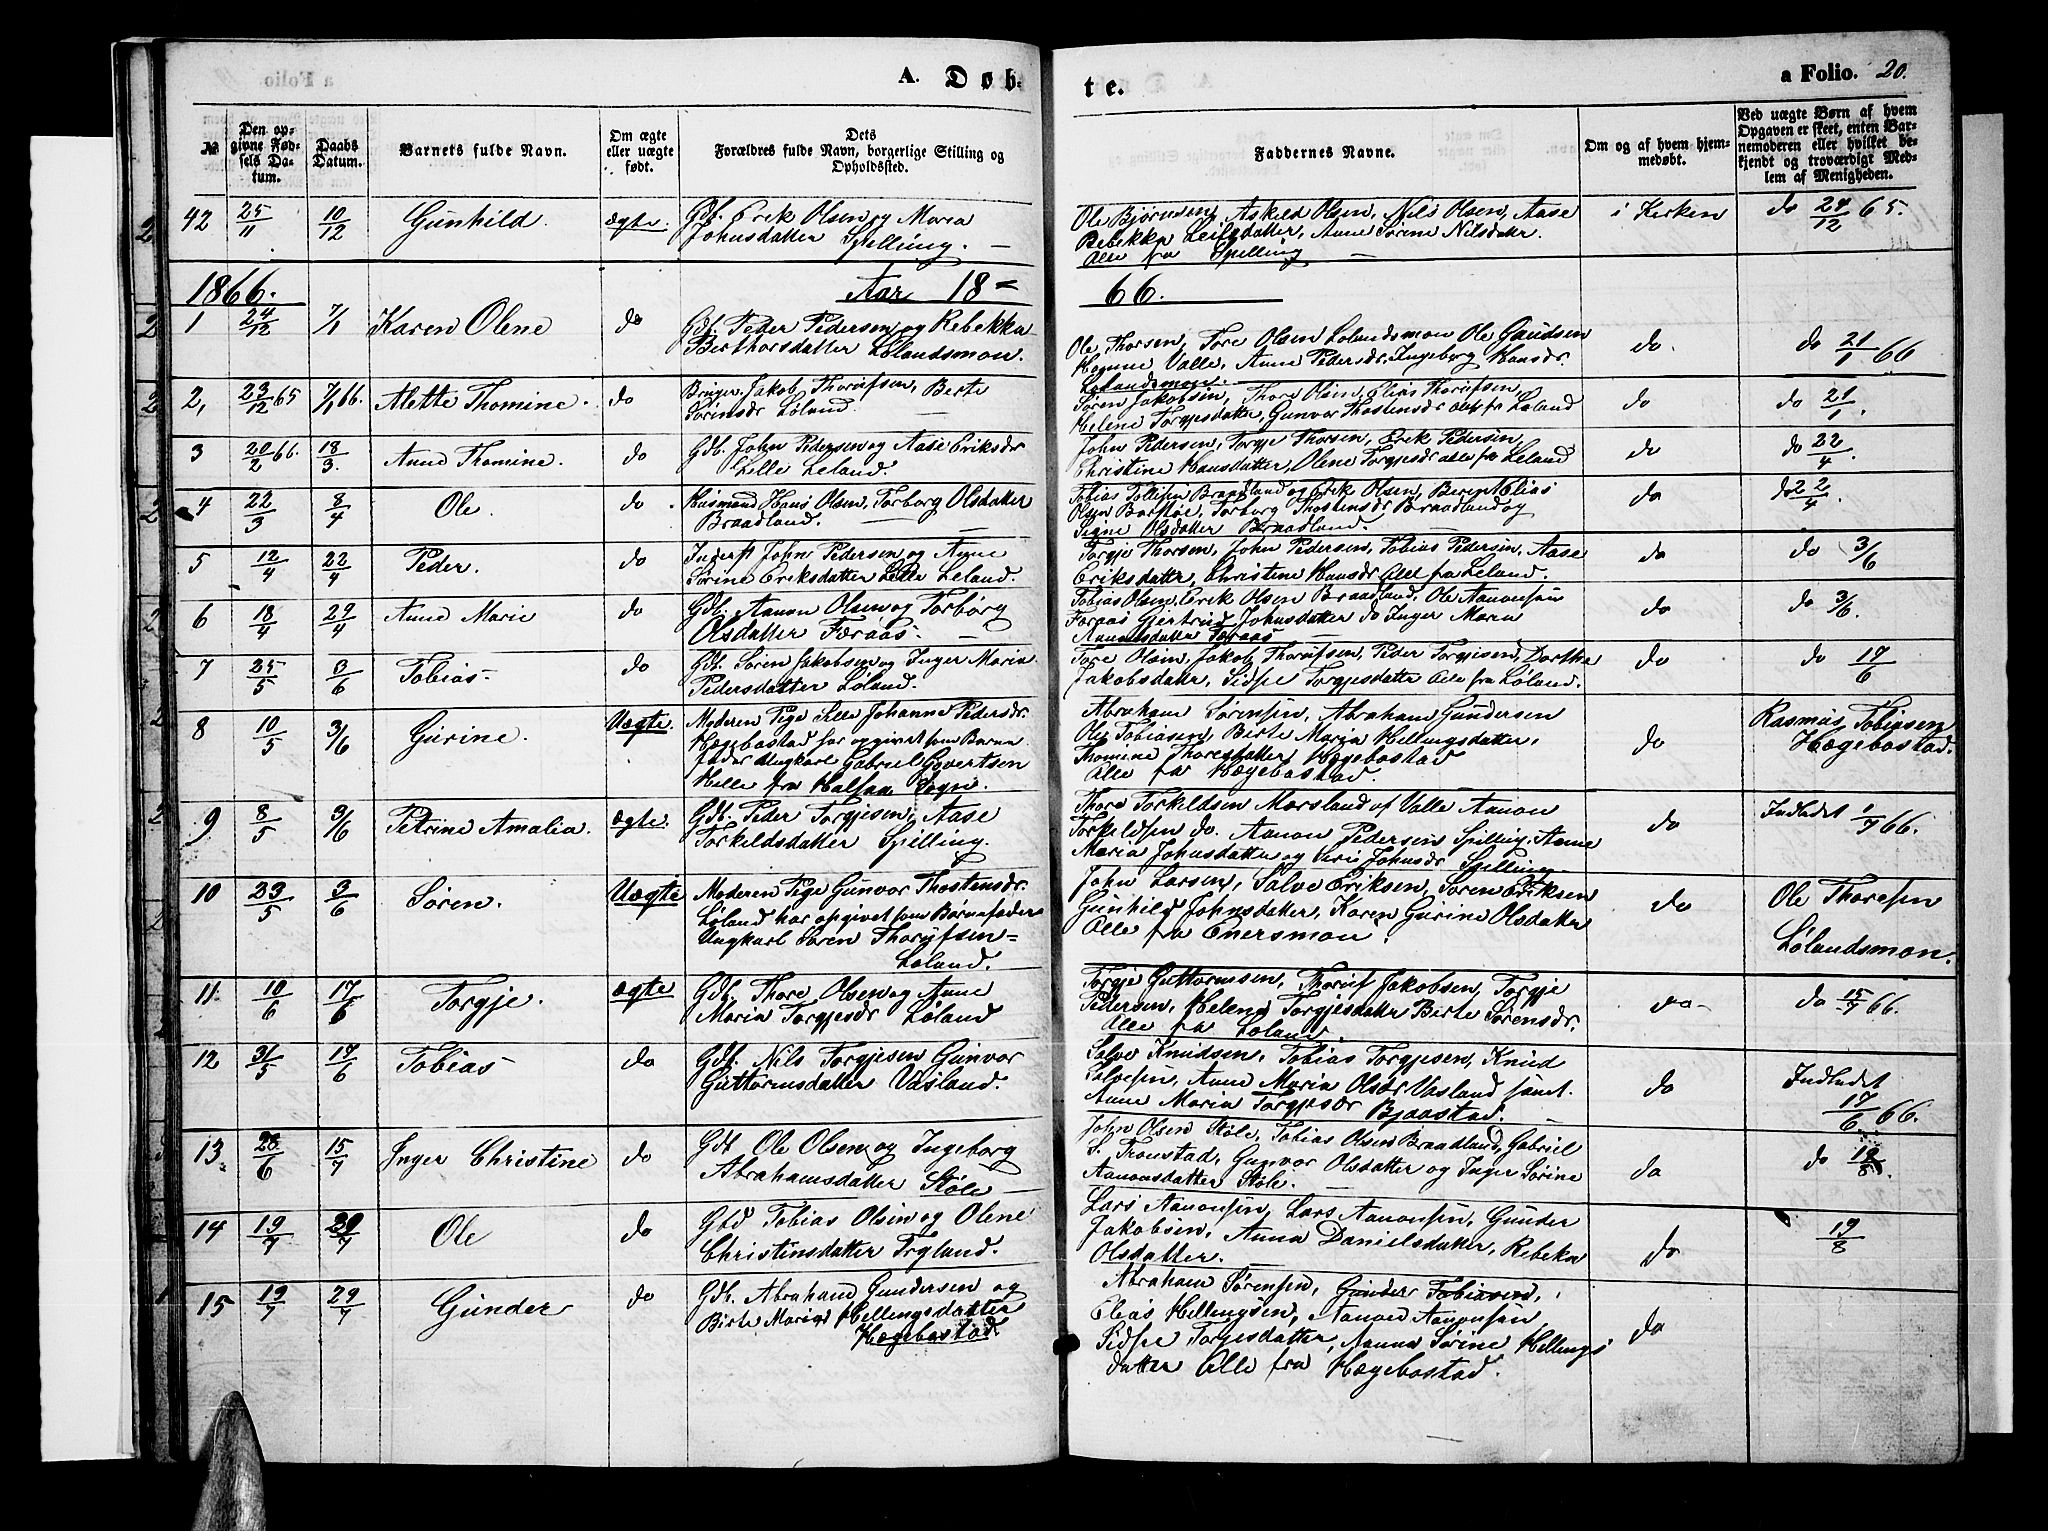 A. Døb-
te.
a Folio. 20.
№
Den op-
givne Fød-
sels Da-
tum.
Daabs
Datum.
Barnets fulde Navn.
Om ægte
eller uægte
født.
Dets
Forældres fulde Navn, borgerlige Stilling og
Opholdssted.
Faddernes Navne.
Om og af hvem hjem-
medøbt.
Ved uægte Børn af hvem
Opgaven er skeet, enten Bar-
nemoderen eller hvilket be-
kjendt og troværdigt Med-
lem af Menigheden.
42 25/11 10/12 Gunhild. ægte. Gbf. Erik Olsen og Maria
Johnsdatter Spilling. —
Ole Bjørnsen, Askild Olsen, Nils Olsen, Aase
Rebekka Leifsdatter, Anne Sørine Nilsdatter
Alle fra Spilling —
i Kirken do 24/12 65.
1866. Aar 18=
66.
1 24/12 7/1 Karen Olene do Gbf. Peder Pedersen og Rebekka
Berthorsdatter Lølandsmon.
Ole Thorsen, Tore Olsen Lølandsmon Ole
Homme Valle, Anne Pedersdr. Ingeborg Hansdr.
Lølandsmon.
do. do 21/1 66
2, 23/12 65 7/1 66. Alette Thomine. do Bruger Jakob Thorufsen, Berte
Sørensdr Løland. —
Søren Jakobsen, Thore Olsen, Elias Thorufsen,
Helene Torgjesdatter, Gunvor Thostensdr alle fra Løland
do do 21/1.
3 20/2 66. 18/3. Anne Thomine. do Gbf. John Pedersen og Aase Eriksdr
Lille Leland.
John Pedersen, Torgje Thorsen, Erik Pedersen,
Christine Hansdatter, Olene Torgjesdr alle fra Leland
do do 22/4.
4 22/3 8/4 Ole. do Husmand Hans Olsen, Torborg Olsdatter
Braadland. —
Tobias Tollefsen Braadland og Erik Olsen,
Olsen Barstøe, Torborg Thostensdr Braadland og
Signe Olsdatter Braadland.
do do 22/4.
5 12/4 22/4 Peder. do Inderst John Pedersen og Anne
Sørine Eriksdatter Lille Leland.
Torgje Thorsen, John Pedersen, Tobias Pedersen, Aase
Eriksdatter, Christine Hansdr Alle fra Leland.
do do 3/6
6 18/4 29/4 Anne Marie do Gbf. Aanon Olsen og Torborg
Olsdatter Færaas. —
Tobias Olsen, Erik Olsen Braadland, Ole Aanonsen
Færaas Gjertrud Johnsdatter do Inger Maria
Aanonsdatter Færaas —
do do 3/6.
7 25/5 3/6 Tobias do Gbf. Søren Jakobsen og Inger Maria
Pedersdatter Løland.
Tore Olsen, Jakob Thorufsen, Peder Torgjesen, Dorthe
Jakobsdatter, Sidse Torgjesdatter Alle fra Løland.
do do 17/6
8 10/5 3/6 Gurine. Uægte. Moderen Pige Sille Johanne Pedersdr.
Hægebostad har opgivet som Barne
fader Ungkarl Gabriel Govertsen
Hille fra Halsaa Sogn.
Abraham Sørensen, Abraham Gundersen
Ole Tobiasen, Birte Maria Hellingsdatter,
Thomine Thoresdatter Hægebostad
Alle fra Hægebostad.
do Rasmus Tobiasen
Hægebostad.
9 8/5 3/6 Petrine Amalia. ægte. Gbf. Peder Torgjesen, Aase
Torkildsdatter Spilling.
Thore Torkildsen Mærsland af Valle Aanon
Torkildsen do. Aanon Pedersen Spilling, Anne
Maria Johnsdatter og Siri Johnsdr Spilling
do Indladet 1/7 66.
10 23/5 3/6 Søren. Uægte Moderen Pige Gunvor Thostensdr.
Løland har opgivet som Barnefader
Ungkarl Søren Thorufsen=
Løland.
John Larsen, Salve Eriksen, Søren Eriksen
Gunhild Johnsdatter, Karen Gurine Olsdatter
Alle fra Enersmon.
do Ole Thoresen
Lølandsmon.
11 10/6 17/6 Torgje. ægte Gbf. Thore Olsen og Anne
Maria Torgjesdr Løland
Torgje Guttormsen, Thoruf Jakobsen, Torgje
Pedersen, Helene Torgjesdatter Berte Sørensdr.
Alle fra Løland.
do- do 15/7 66.
12 31/5 17/6 Tobias do Gbf. Nils Torgjesen Gunvor
Guttormsdatter Vasland.
Salve Knudsen, Tobias Torgjesen, Knud
Salvesen, Anne Maria Olsdr Vasland samt
Anne Maria Torgjesdr Bjaastad. —
do Indladet
17/6 66.
13 28/6 15/7 Inger Christine do Gbf Ole Olsen og Ingeborg
Abrahamsdatter Støle —
John Olsen Støle, Tobias Olsen Braadland, Gabriel
S. Tronstad, Gunvor Olsdatter og Inger Sørine
Aanonsdatter Støle. —
do do 19/8.
14 19/7 29/7 Ole do Gbd Tobias Olsen og Olene
Christinsdatter Trgland.
Lars Aanonsen, Lars Aanonsen, Gunder
Jakobsen, Anna Danielsdatter, Rebeka
Olsdatter.
do 19/8
15 19/7 29/7 Gunder do Gbf. Abraham Gundersen og
Birte Maria Hellingsdatter
Hægebostad
Abraham Sørensen, Gunder Tobiasen,
Elias Hellingsen, Aanon Aanonsen
Sidse Torgjesdatter, Anna Sørine Hellings
datter Alle fra Hægebostad.
do